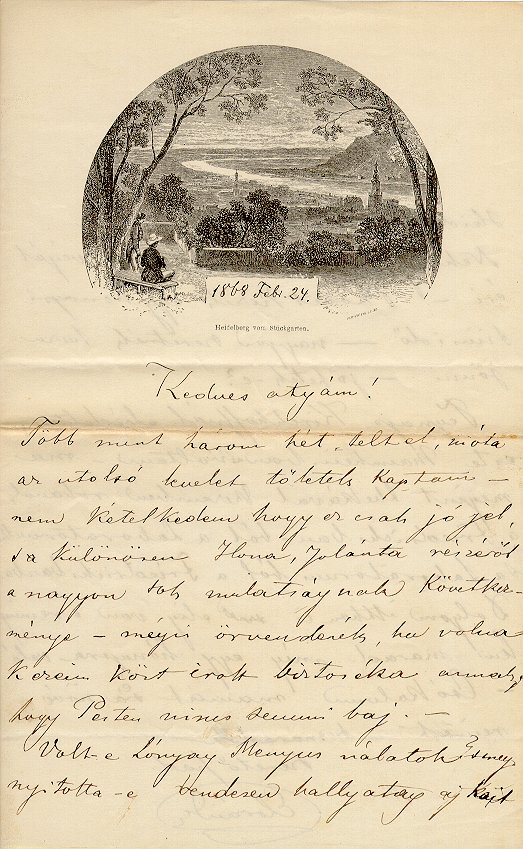 1868 Febr. 24.
Heidelberg vom Stückgarten.
Kedves atyám!
Több mint három hét telt el, mióta
az utolsó levelet tőletek kaptam –
nem kételkedem hogy ez csak jó jel,
s a különösen Ilona, Jolanta részéről
a nagyon sok mulatságnak következ-
ménye – mégis örvendenék, ha volna
kezeim közt irott biztosítéka annak,
hogy Pesten nincs semmi baj. –
Volt-e Lónyay Menyus nálatok? s meg
nyitotta-e rendesen